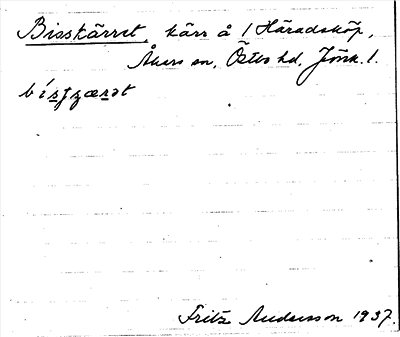 Bisskärret, kärr å 1 Häradsköp,
Åkers sn, Östbo hd, Jönk. l.
Fritz Andersson 1937.